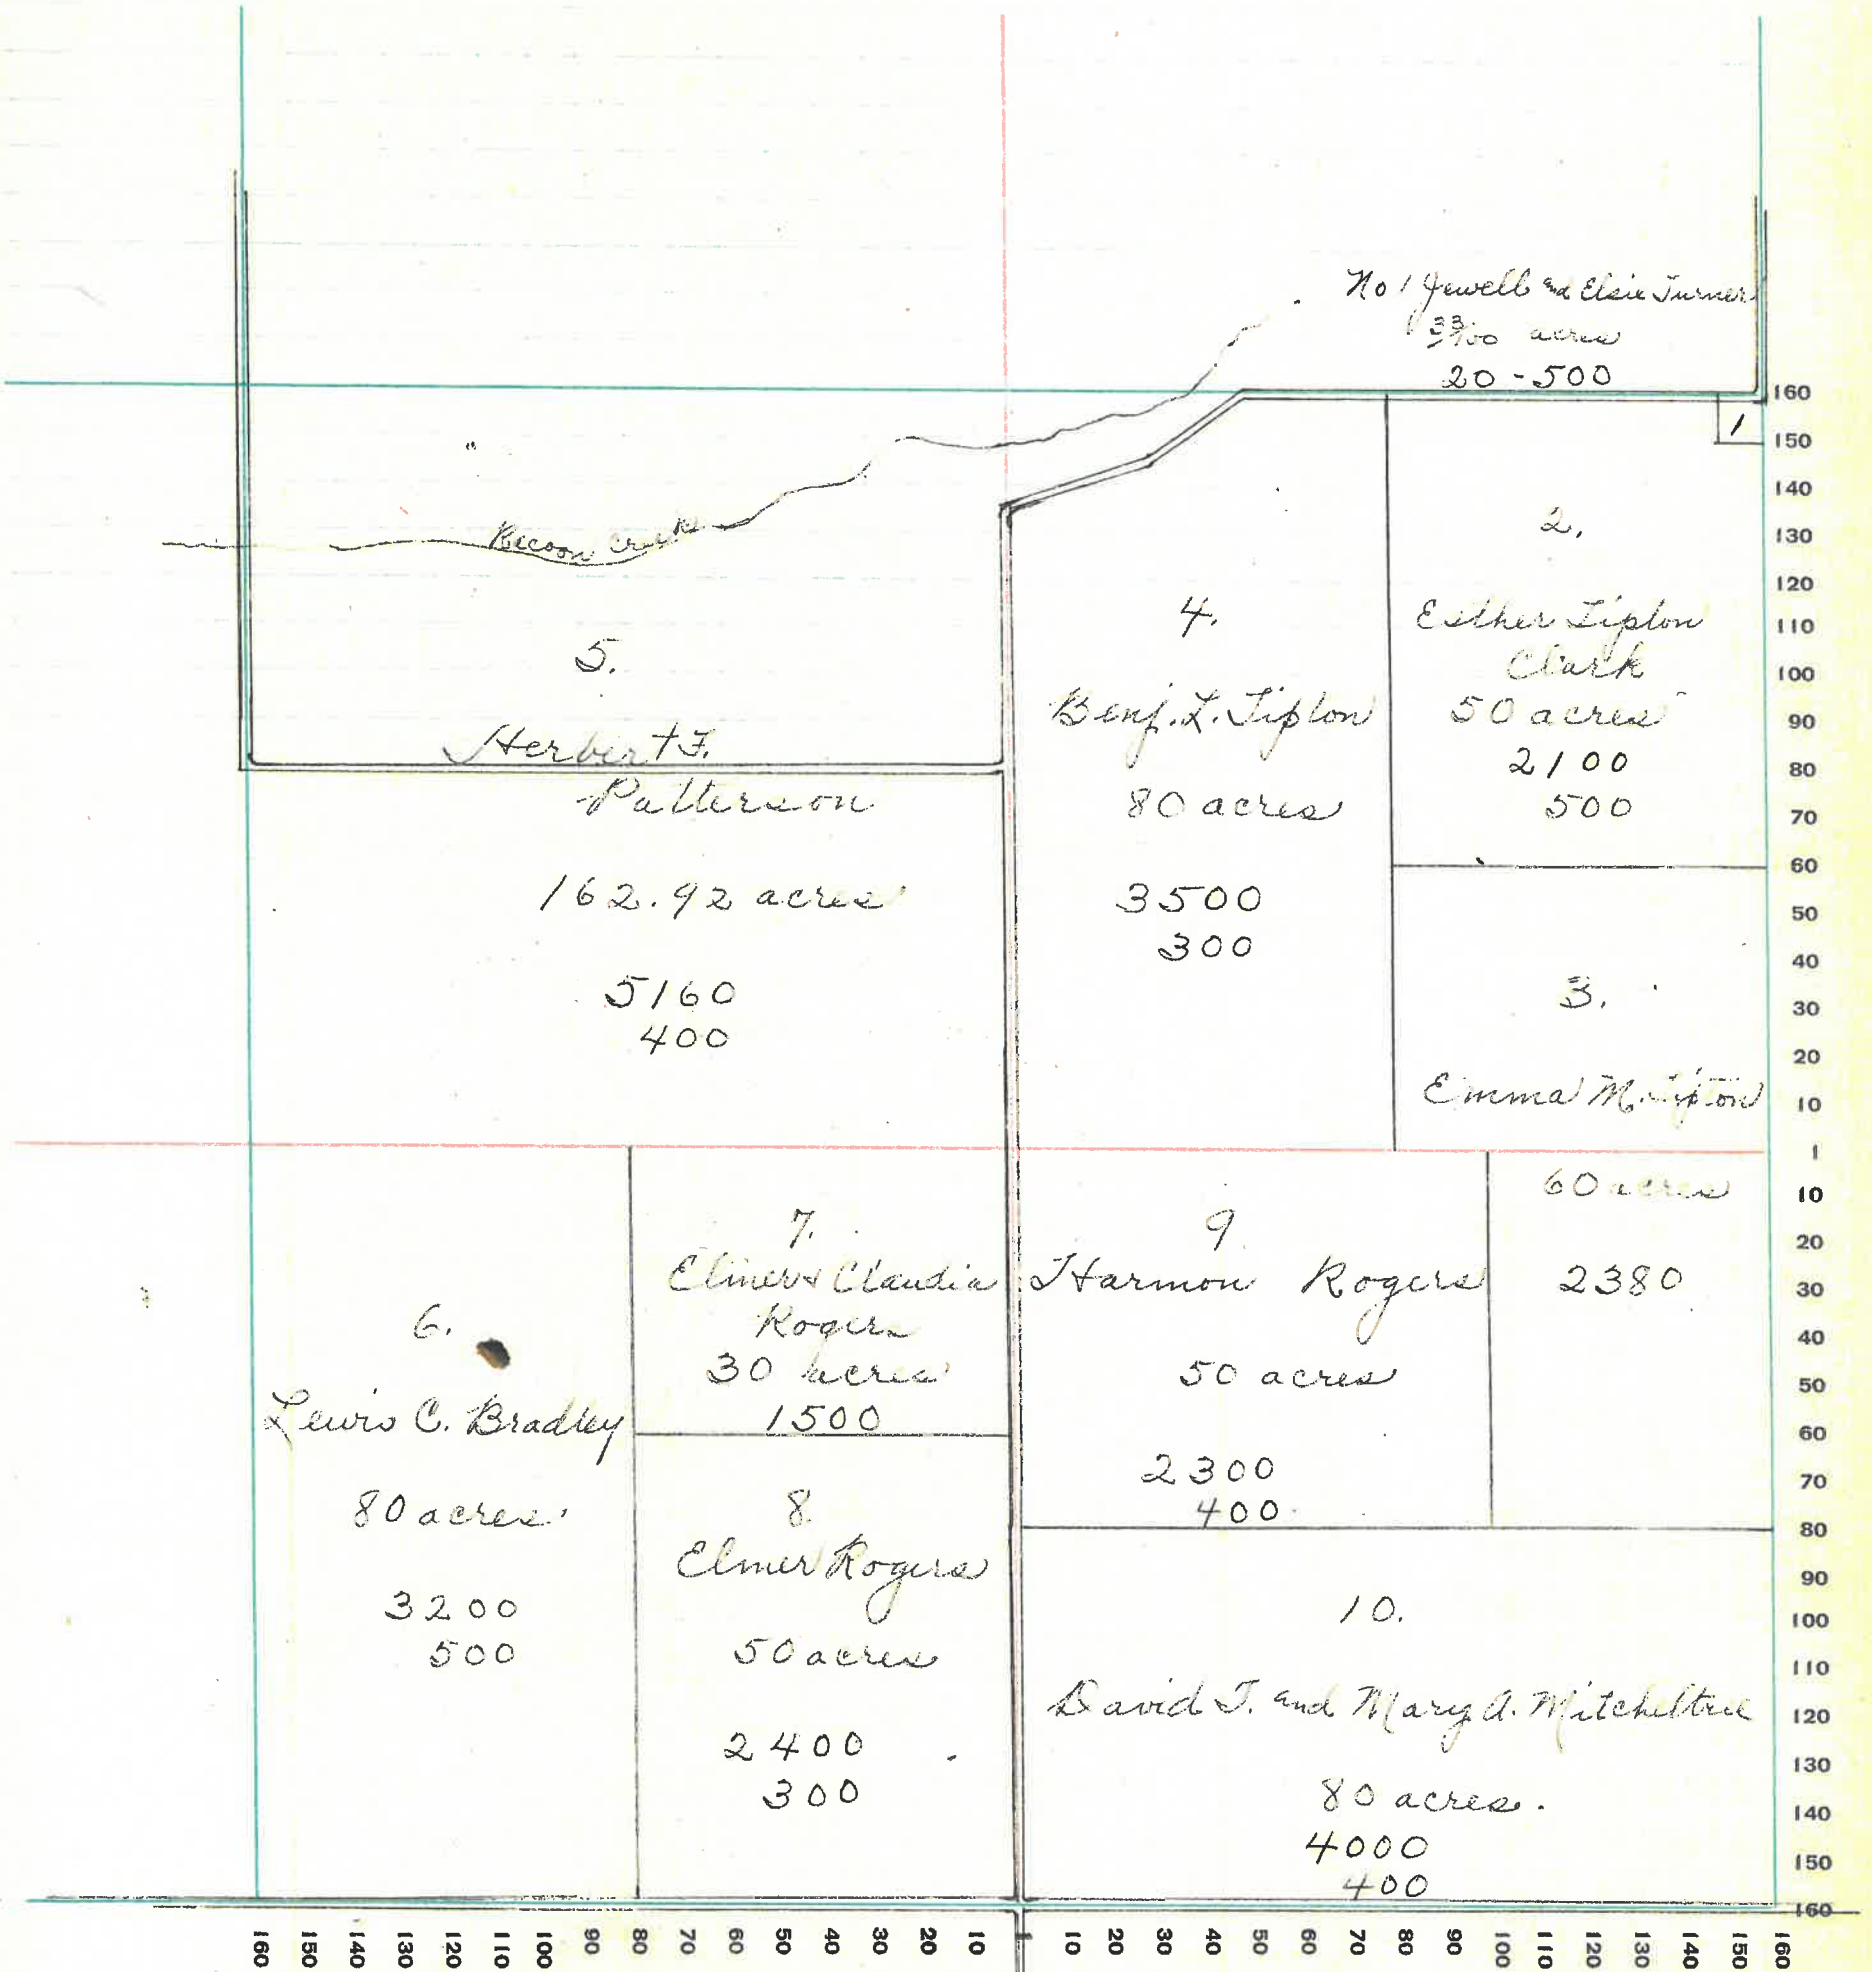 No 1 Jewell and Elsie Turner
33/100 acres
20 - 500
1
Racoon Creek
2.
Esther Tipton
Clark
50 acres
2100
500
4.
Benj. L. Tipton
80 acres
3500
300
5.
Herbert F.
Patterson
162.92 acres
5160
400
3.
Emma M. Tipton
60 acres
2380
6.
Lewis C. Bradley
80 acres.
3200
500
7.
Elmer & Claudia
Rogers
30 acres
1500
8.
Elmer Rogers
50 acres
2400
300
9.
Harmon Rogers
50 acres
2300
400
10.
David T. and Mary A. Mitcheltree
80 acres.
4000
400
160
150
140
130
120
110
100
90
80
70
60
50
40
30
20
10
1
10
20
30
40
50
60
70
80
90
100
110
120
130
140
150
160
160 150 140 130 120 110 100 90 80 70 60 50 40 30 20 10 1 10 20 30 40 50 60 70 80 90 100 110 120 130 140 150 160